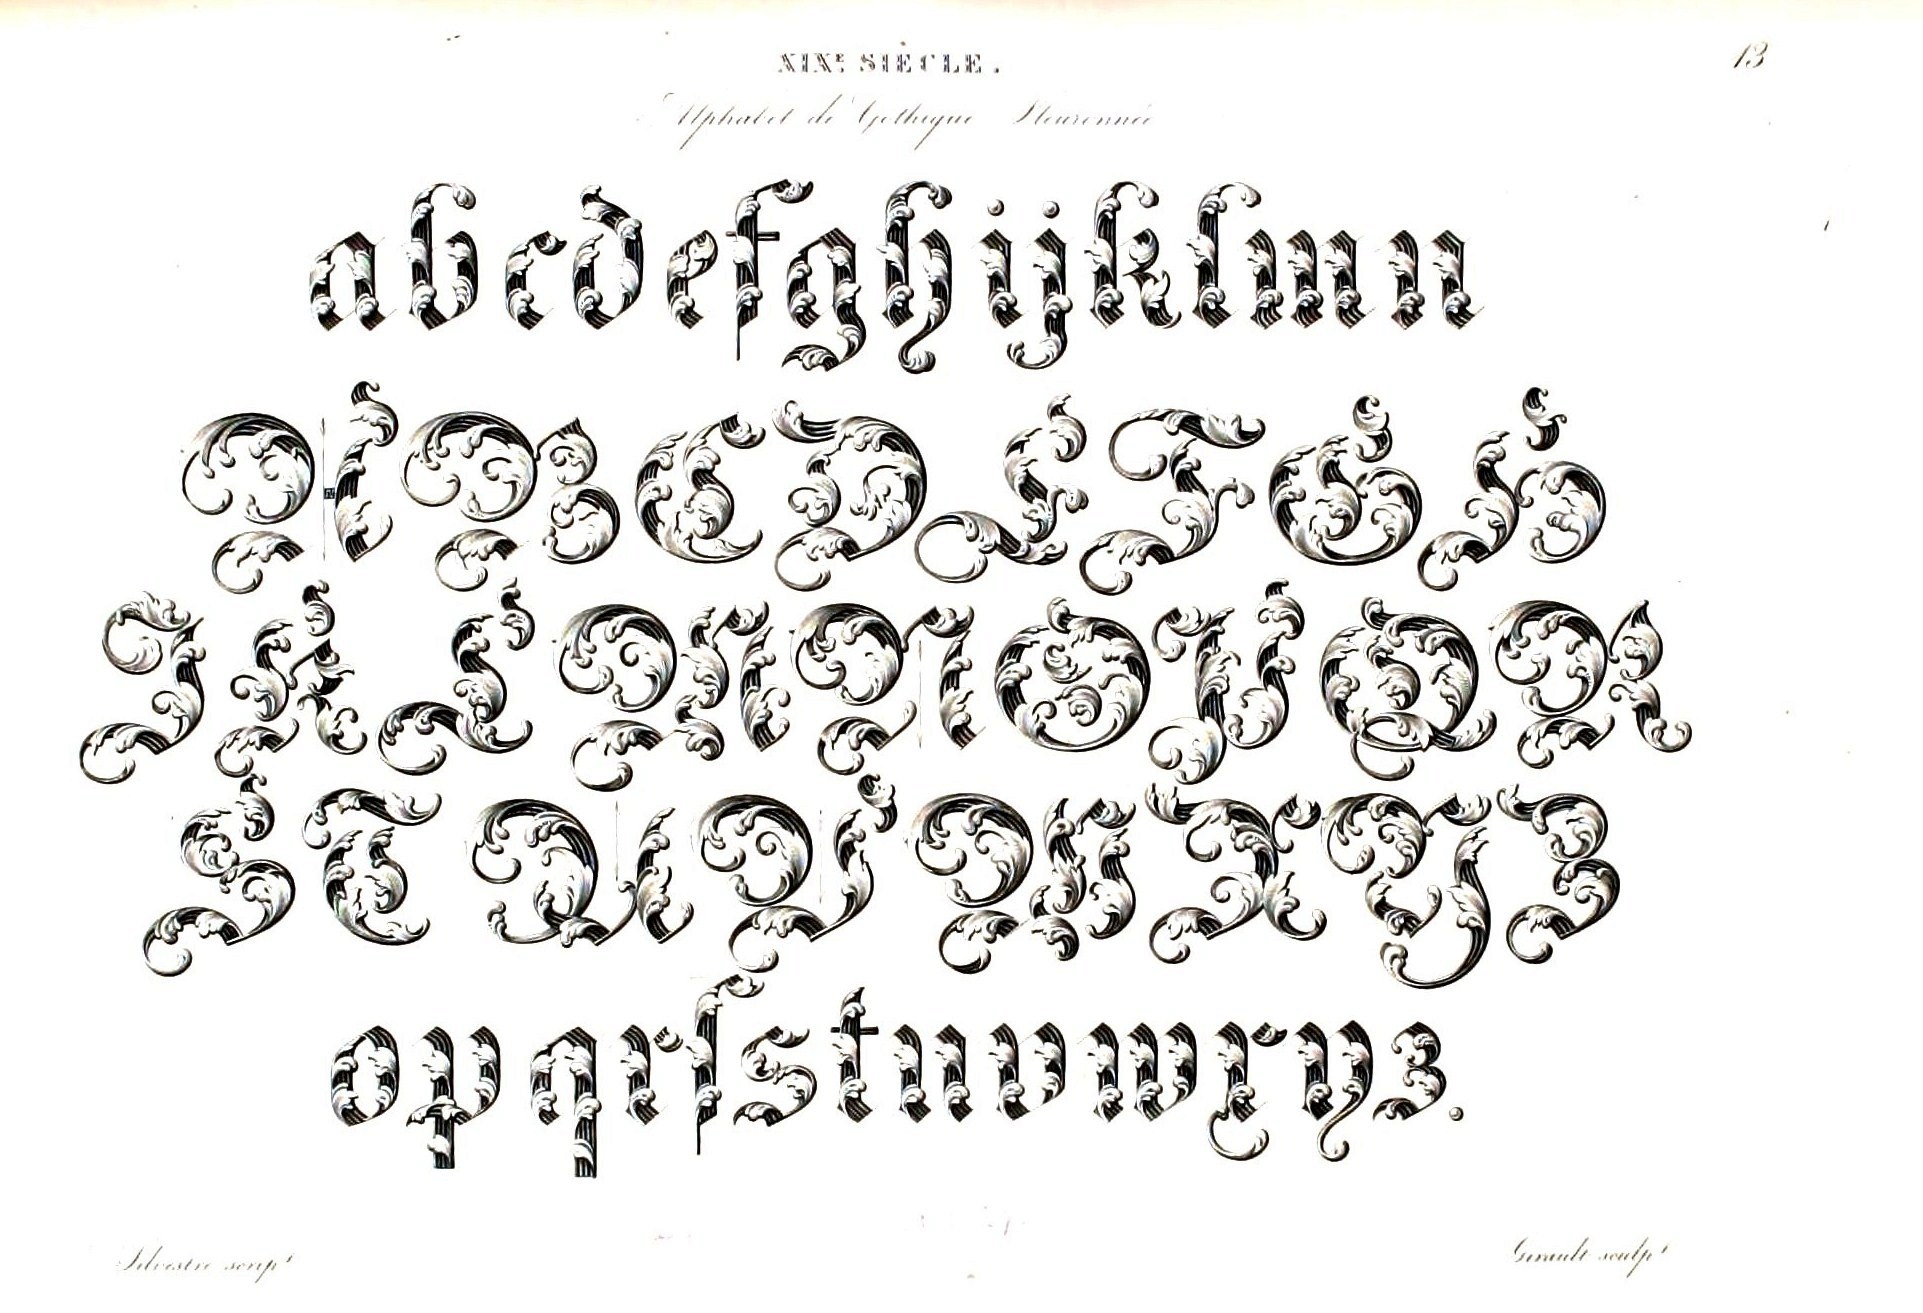 XIXᵉ SIÈCLE. 13
Alphabet de Gothique Fleuronnée
abcdefghijklmn
ABCDEFGH
IKLMNOPQR
STUVWXYZ
opqrſstuvwxyz.
Silvestre scripᵗ Girault sculpᵗ